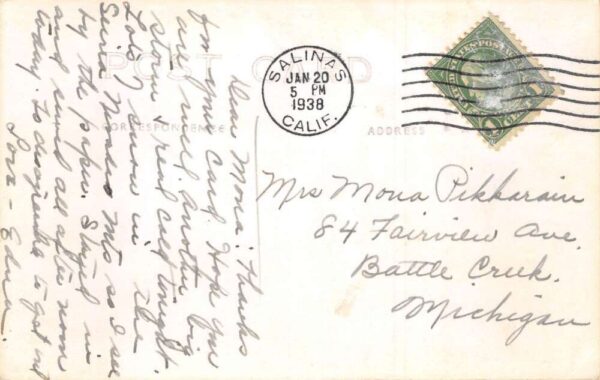 POST CARD
CORRESPONDENCE
ADDRESS
SALINAS
JAN 20
5 PM
1938
CALIF.
Dear Mona: Thanks
for your card. Hope you
are well. Another big
storm & real cold tonight.
Lots of snow in the
Sierra Nevada Mts so I see
by the paper. Stayed in
and sewed all after noon
today. To disagreeable to get out
Love - Edna.
Mrs Mona Pikkarain
84 Fairview Ave.
Battle Creek.
Michigan